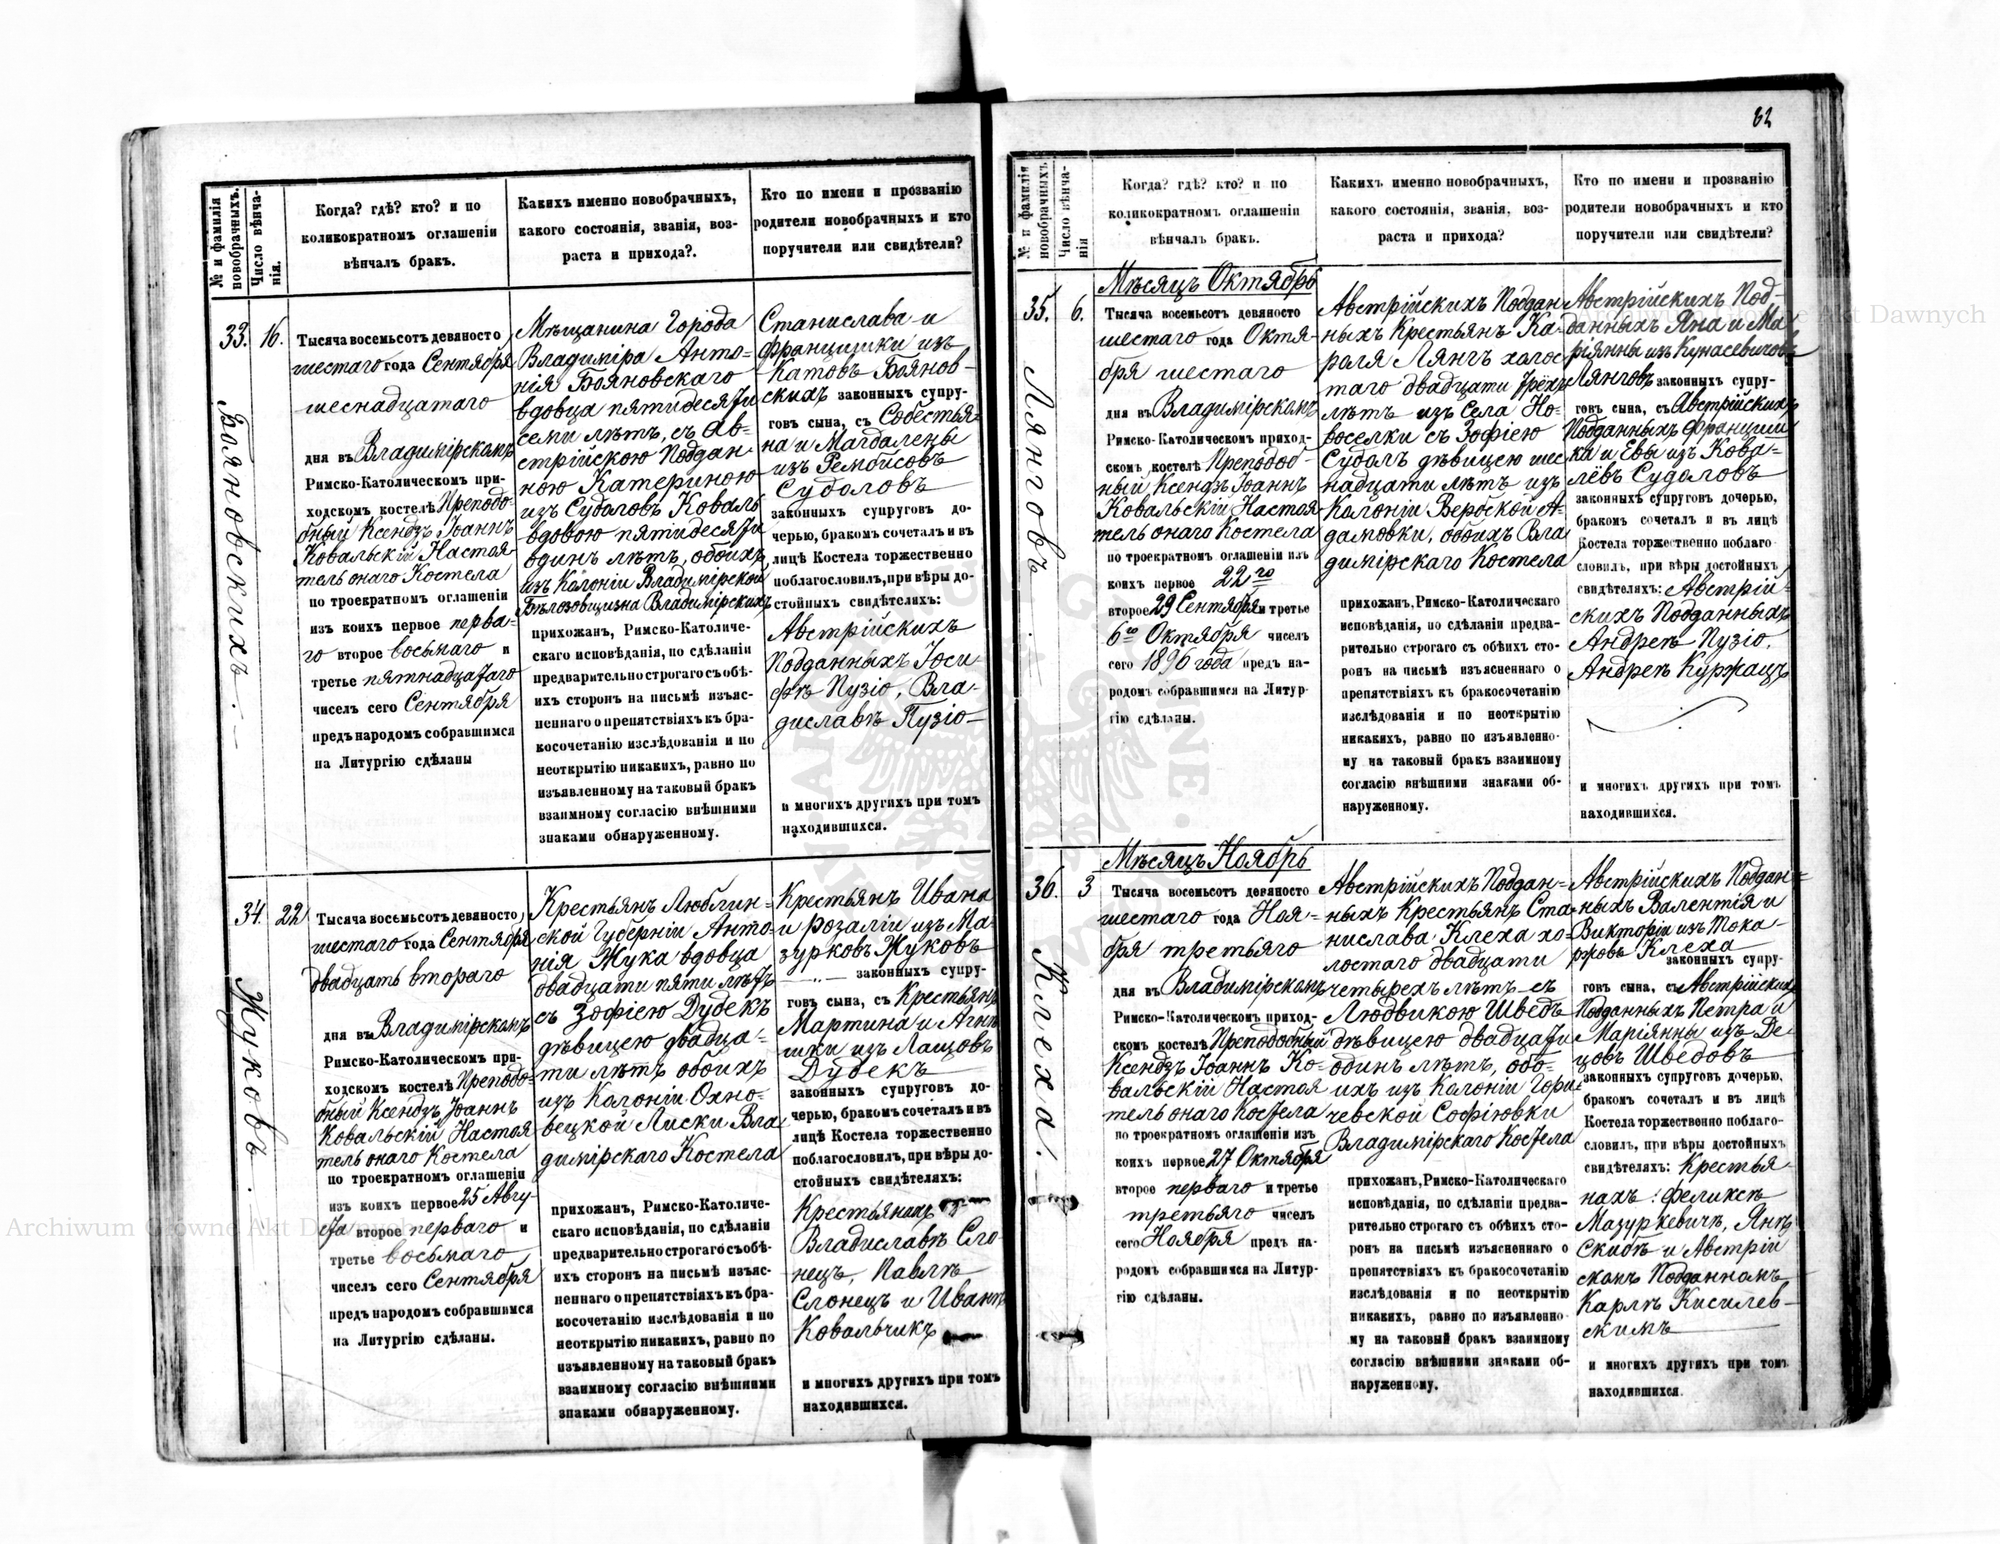 № и фамилія новобрачныхъ.
Число вѣнчанія.
Когда? гдѣ? кто? и по
коликократномъ оглашеніи
вѣнчалъ бракъ.
Какихъ именно новобрачныхъ,
какого состоянія, званія, воз-
раста и прихода?.
Кто по имени и прозванію
родители новобрачныхъ и кто
поручители или свидѣтели?
33.
16.
Бояновскихъ.
Тысяча восемьсотъ девяносто
шестаго года Сентября
шеснадцатаго
дня въ Владимірскомъ
Римско-Католическомъ при-
ходскомъ костелѣ Преподо-
бный Ксендзъ Іоаннъ
Ковальскій Настоя-
тель онаго Костела
по троекратномъ оглашеніи
изъ коихъ первое перва-
го второе восьмаго и
третье пятнадцатаго
чиселъ сего Сентября
предъ народомъ собравшимся
на Литургію сдѣланы
Мѣщанина Города
Владиміра Анто-
нія Бояновскаго
вдовца пятидесяти
семи лѣтъ, съ Ав-
стрійскою Поддан-
ною Катериною
изъ Судоловъ Коваль
вдовою пятидесяти
одинъ лѣтъ, обоихъ
изъ Колоніи Владимірской
Бѣлозовщизна Владимірскихъ
прихожанъ, Римско-Католиче-
скаго исповѣданія, по сдѣланіи
предварительно строгаго съ обѣ-
ихъ сторонъ на письмѣ изъяс-
неннаго о препятствіяхъ къ бра-
косочетанію изслѣдованія и по
неоткрытію никакихъ, равно по
изъявленному на таковый бракъ
взаимному согласію внѣшними
знаками обнаруженному.
Станислава и
Францишки изъ
Катовъ Боянов-
скихъ законныхъ супру-
говъ сына, съ Собестья-
на и Магдалены
изъ Рембисовъ
Судоловъ
законныхъ супруговъ до-
черью, бракомъ сочеталъ и въ
лицѣ Костела торжественно
поблагословилъ, при вѣры до-
стойныхъ свидѣтеляхъ:
Австрійскихъ
Подданныхъ Іоси-
фѣ Пузіо, Вла-
диславѣ Пузіо
и многихъ другихъ при томъ
находившихся.
34.
22
Жуковъ.
Тысяча восемьсотъ девяносто
шестаго года Сентября
двадцать втораго
дня въ Владимірскомъ
Римско-Католическомъ при-
ходскомъ костелѣ Преподо-
бный Ксендзъ Іоаннъ
Ковальскій Настоя
тель онаго Костела
по троекратномъ оглашеніи
изъ коихъ первое 25 Авгу-
ста второе перваго и
третье восьмаго
чиселъ сего Сентября
предъ народомъ собравшимся
на Литургію сдѣланы.
Крестьянъ Люблин-
ской Губерніи Анто-
нія Жука вдовца
двадцати пяти лѣтъ
съ Зофіею Дудекъ
дѣвицею двадца-
ти лѣтъ обоихъ
изъ Колоніи Охно-
вецкой Лиски Вла
димірскаго Костела
прихожанъ, Римско-Католиче-
скаго исповѣданія, по сдѣланіи
предварительно строгаго съ обѣ-
ихъ сторонъ на письмѣ изъяс-
неннаго о препятствіяхъ къ бра-
косочетанію изслѣдованія и по
неоткрытію никакихъ, равно по
изъявленному на таковый бракъ
взаимному согласію внѣшними
знаками обнаруженному.
Крестьянъ Ивана
и Розаліи изъ Ма-
зурковъ Жуковъ
законныхъ супру-
говъ сына, съ Крестьянъ
Мартина и Агнѣ
шки изъ Лащовъ
Дудекъ
законныхъ супруговъ до-
черью, бракомъ сочеталъ и въ
лицѣ Костела торжественно
поблагословилъ, при вѣры до-
стойныхъ свидѣтеляхъ:
Крестьянахъ
Владиславѣ Сло-
нецъ, Павлѣ
Слонецъ и Иванѣ
Ковальчикъ
и многихъ другихъ при томъ
находившихся.
82
№ и фамилія новобрачныхъ
Число вѣнчанія
Когда? гдѣ? кто? и по
коликократномъ оглашеніи
вѣнчалъ бракъ.
Какихъ именно новобрачныхъ,
какого состоянія, званія, воз-
раста и прихода?
Кто по имени и прозванію
родители новобрачныхъ и кто
поручители или свидѣтели?
35.
6.
Ланговъ.
Мѣсяцъ Октябрь
Тысяча восемьсотъ девяносто
шестаго года Октя-
бря шестаго
дня въ Владимірскомъ
Римско-Католическомъ приход-
скомъ костелѣ Преподоб-
ный Ксендзъ Іоаннъ
Ковальскій Настоя
тель онаго Костела
по троекратномъ оглашеніи изъ
коихъ первое 22го
второе 29 Сентября и третье
6го Октября чиселъ
сего 1896 года предъ на-
родомъ собравшимся на Литур-
гію сдѣланы.
Австрійскихъ Поддан
ныхъ Крестьянъ Ка-
роля Лянгъ холос
таго двадцати трёхъ
лѣтъ изъ Села Но-
воселки съ Зофіею
Судолъ дѣвицею шес
надцати лѣтъ изъ
Колоніи Вербской А-
дамовки, обоихъ Вла
димірскаго Костела
прихожанъ, Римско-Католическаго
исповѣданія, по сдѣланіи предва-
рительно строгаго съ обѣихъ сто-
ронъ на письмѣ изъясненнаго о
препятствіяхъ къ бракосочетанію
изслѣдованія и по неоткрытію
никакихъ, равно по изъявленно-
му на таковый бракъ взаимному
согласію внѣшними знаками об-
наруженному.
Австрійскихъ Под-
данныхъ Яна и Ма-
ріянны изъ Кунасевичовъ
Лянговъ законныхъ супру-
говъ сына, съ Австрійскихъ
Подданныхъ Францишка
и Евы изъ Кова-
лёвъ Судоловъ
законныхъ супруговъ дочерью,
бракомъ сочеталъ и въ лицѣ
Костела торжественно поблаго
словилъ, при вѣры достойныхъ
свидѣтеляхъ: Австрій-
скихъ Подданныхъ
Андреѣ Пузіо,
Андреѣ Куржацъ
и многихъ другихъ при томъ
находившихся.
36.
3
Клеха.
Мѣсяцъ Ноябрь
Тысяча восемьсотъ девяносто
шестаго года Ноя-
бря третьяго
дня въ Владимірскомъ
Римско-Католическомъ приход-
скомъ костелѣ Преподобный
Ксендзъ Іоаннъ Ко-
вальскій Настоя
тель онаго Костела
по троекратномъ оглашеніи изъ
коихъ первое 27 Октября
второе перваго и третье
третьяго чиселъ
сего Ноября предъ на-
родомъ собравшимся на Литур-
гію сдѣланы.
Австрійскихъ Поддан-
ныхъ Крестьянъ Ста-
нислава Клеха хо-
лостаго двадцати
четырехъ лѣтъ съ
Людвикою Шведъ
дѣвицею двадцати
одинъ лѣтъ, обо-
ихъ изъ Колоніи Гори-
чевской Софіювки
Владимірскаго Костела
прихожанъ, Римско-Католическаго
исповѣданія, по сдѣланіи предва-
рительно строгаго съ обѣихъ сто-
ронъ на письмѣ изъясненнаго о
препятствіяхъ къ бракосочетанію
изслѣдованія и по неоткрытію
никакихъ, равно по изъявленно-
му на таковый бракъ взаимному
согласію внѣшними знаками об-
наруженному.
Австрійскихъ Поддан-
ныхъ Валентія и
Викторіи изъ Тока-
ржовъ Клеха
законныхъ супру-
говъ сына, съ Австрійскихъ
Подданныхъ Петра и
Маріянны изъ Де-
цовъ Шведовъ
законныхъ супруговъ дочерью,
бракомъ сочеталъ и въ лицѣ
Костела торжественно поблаго-
словилъ, при вѣры достойныхъ
свидѣтеляхъ: Крестья-
нахъ: Феликсѣ
Мазуркевичъ, Янѣ
Скибѣ и Австрій
скомъ Подданномъ
Карлѣ Кисилев-
скимъ
и многихъ другихъ при томъ
находившихся.
Archiwum Główne Akt Dawnych
Archiwum Główne Akt Dawnych